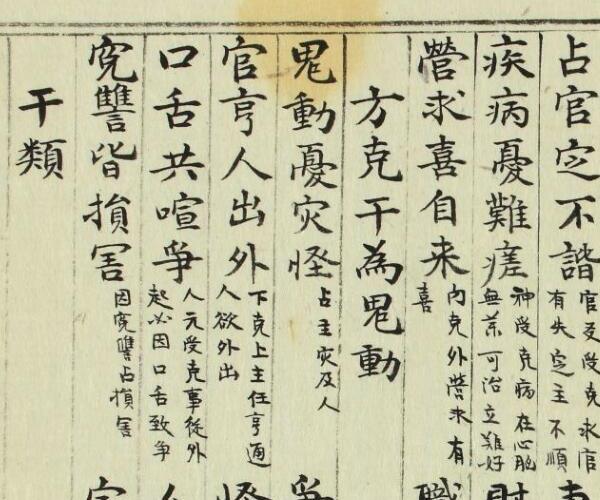 占官定不諧官及受克求官有失定主不順
疾病憂難瘥神受克病在心胞無茶可治立難好
營求喜自来内克外營求有喜
方克干為鬼動
鬼動憂灾怪占主灾及人
官亨人出外下克上主任亨通人欲外出
口舌共喧爭人元受克事從外起必因口舌致爭
寃讐皆損害因寃讐占損害
干類